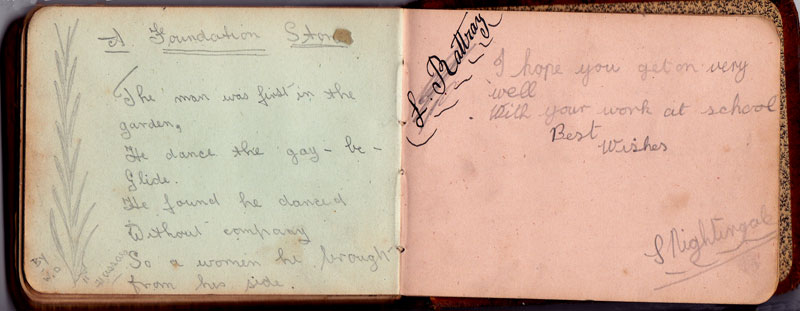 A Foundation Stone
The man was first in the
garden,
He dance the gay - be -
Glide.
He found he danced
Without company
So a women he brough
from his side.
By
L. Rattray
I hope you get on very
well
With your work at school
Best
Wishes
S Nightingale